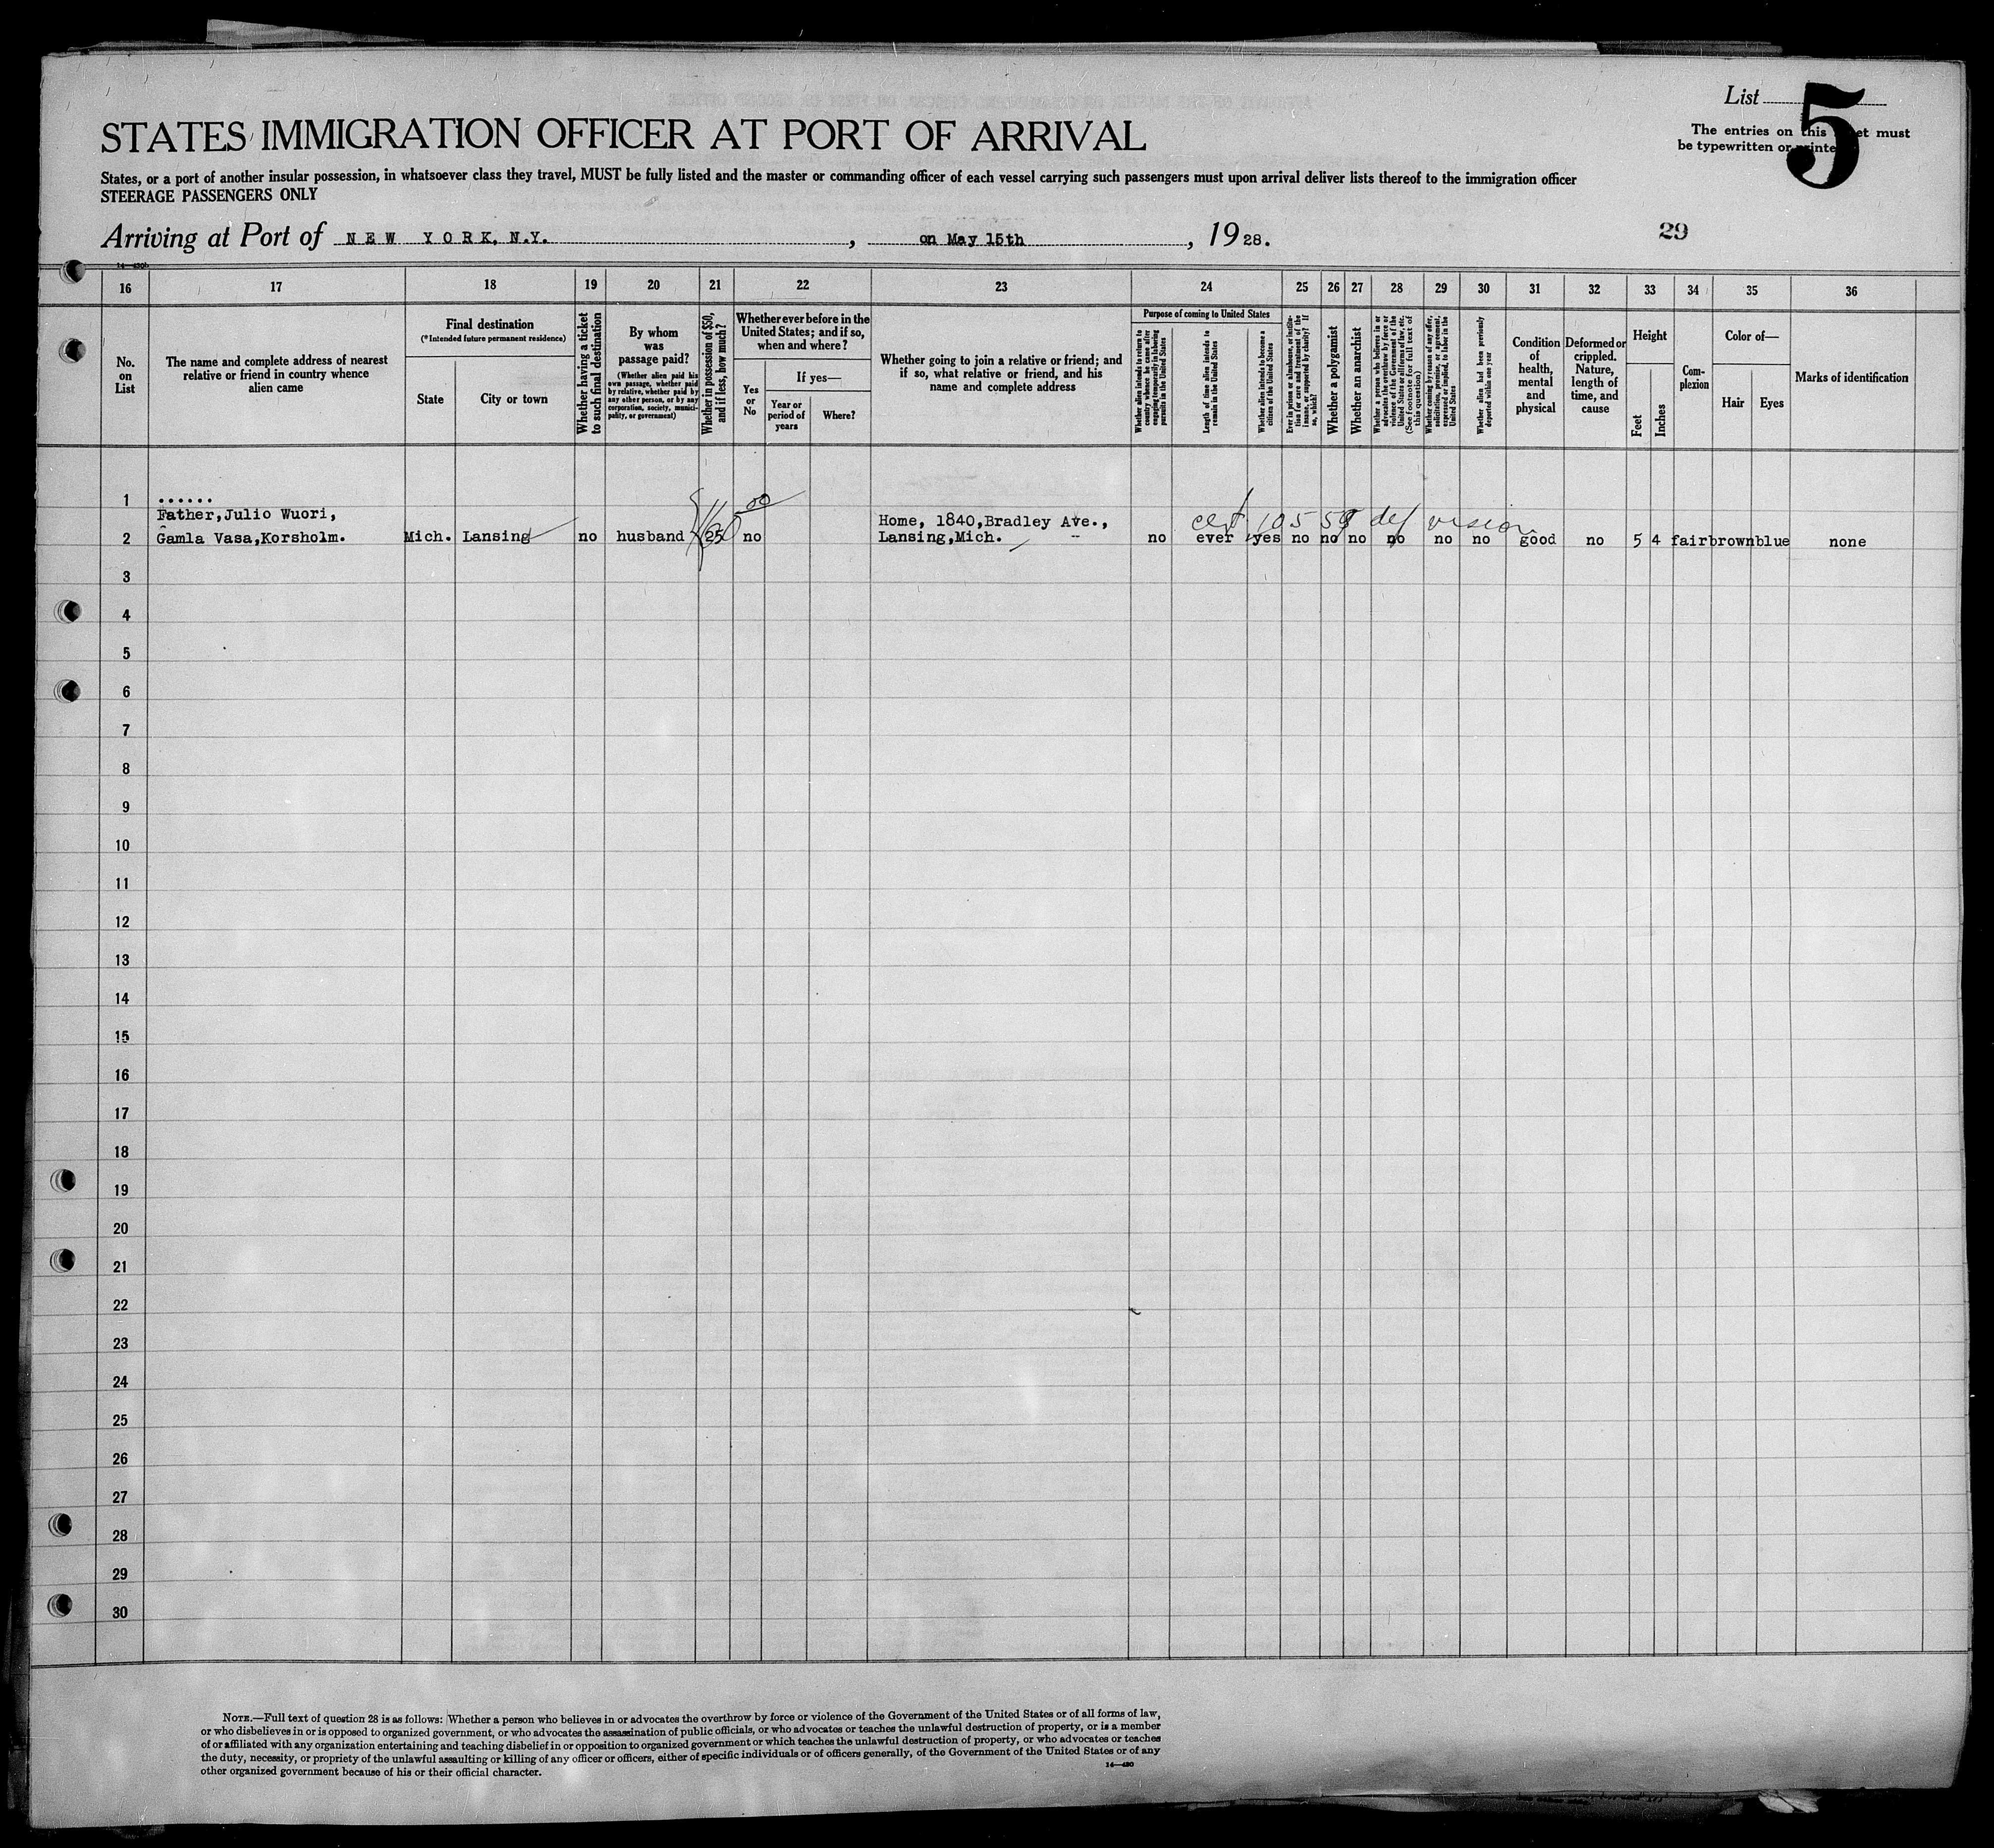 List
5
The entries on this sheet must
be typewritten or printed
STATES IMMIGRATION OFFICER AT PORT OF ARRIVAL
States, or a port of another insular possession, in whatsoever class they travel, MUST be fully listed and the master or commanding officer of each vessel carrying such passengers must upon arrival deliver lists thereof to the immigration officer
STEERAGE PASSENGERS ONLY
Arriving at Port of NEW YORK, N.Y. , on May 15th , 1928.
29
16 17 18 19 20 21 22 23 24 25 26 27 28 29 30 31 32 33 34 35 36
No. on List
The name and complete address of nearest relative or friend in country whence alien came
Final destination
(*Intended future permanent residence)
State
City or town
Whether having a ticket to such final destination
By whom was passage paid?
(Whether alien paid his own passage, whether paid by relative, whether paid by any other person, or by any corporation, society, municipality, or government)
Whether in possession of $50, and if less, how much?
Whether ever before in the United States; and if so, when and where?
Yes or No
If yes—
Year or period of years
Where?
Whether going to join a relative or friend; and if so, what relative or friend, and his name and complete address
Purpose of coming to United States
Whether alien intends to return to country whence he came after engaging temporarily in laboring pursuits in the United States
Length of time alien intends to remain in the United States
Whether alien intends to become a citizen of the United States
Ever in prison or almshouse, or institution for care and treatment of the insane, or supported by charity? If so, which?
Whether a polygamist
Whether an anarchist
Whether a person who believes in or advocates the overthrow by force or violence of the Government of the United States or all forms of law, etc. (See footnote for full text of this question)
Whether coming by reason of any offer, solicitation, promise, or agreement, expressed or implied, to labor in the United States
Whether alien had been previously deported within one year
Condition of health, mental and physical
Deformed or crippled. Nature, length of time, and cause
Height
Feet
Inches
Complexion
Color of—
Hair
Eyes
Marks of identification
1 ......
Father,Julio Wuori,
Home, 1840,Bradley Ave.,
cert 10559 def vision
2 Gamla Vasa,Korsholm. Mich. Lansing no husband 25 no Lansing,Mich. no ever yes no no no no no no good no 5 4 fair brown blue none
3
4
5
6
7
8
9
10
11
12
13
14
15
16
17
18
19
20
21
22
23
24
25
26
27
28
29
30
NOTE.—Full text of question 28 is as follows: Whether a person who believes in or advocates the overthrow by force or violence of the Government of the United States or of all forms of law,
or who disbelieves in or is opposed to organized government, or who advocates the assassination of public officials, or who advocates or teaches the unlawful destruction of property, or is a member
of or affiliated with any organization entertaining and teaching disbelief in or opposition to organized government or which teaches the unlawful destruction of property, or who advocates or teaches
the duty, necessity, or propriety of the unlawful assaulting or killing of any officer or officers, either of specific individuals or of officers generally, of the Government of the United States or of any
other organized government because of his or their official character.
14—480